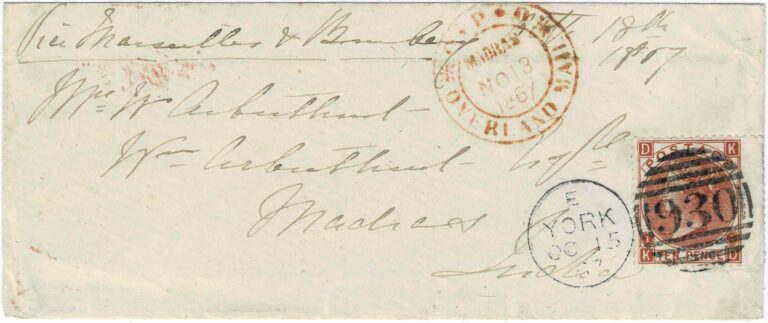 Via Marseilles & Bombay 18th
1867
Mrs W Arbuthnot
Wm Arbuthnot Esqre
Madras
India
MADRAS
NO 13
1867
OVERLAND MAIL
E
YORK
OC 15
D POSTAGE K
930
1
K TEN PENCE D